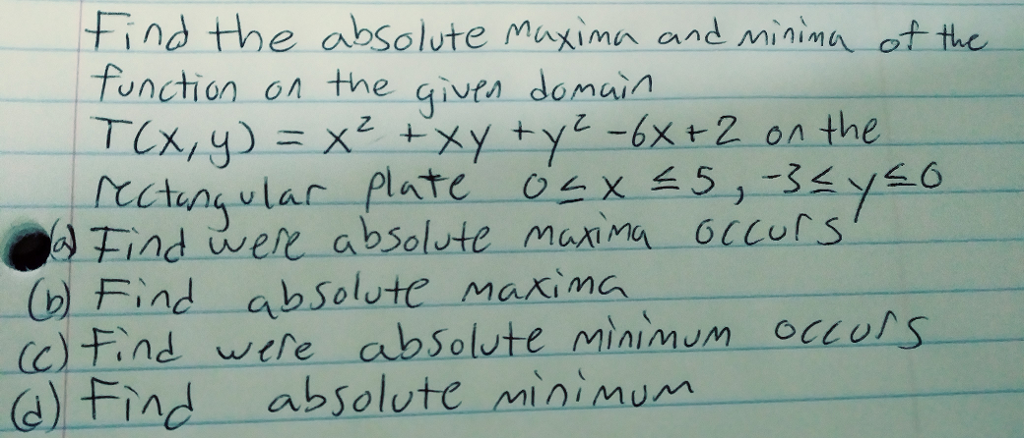 Find the absolute maxima and minima of the
function on the given domain
T(x,y) = x² + xy + y² - 6x + 2 on the
rectangular plate 0 ≤ x ≤ 5, -3 ≤ y ≤ 0
(a) Find were absolute maxima occurs
(b) Find absolute maxima
(c) Find were absolute minimum occurs
(d) Find absolute minimum